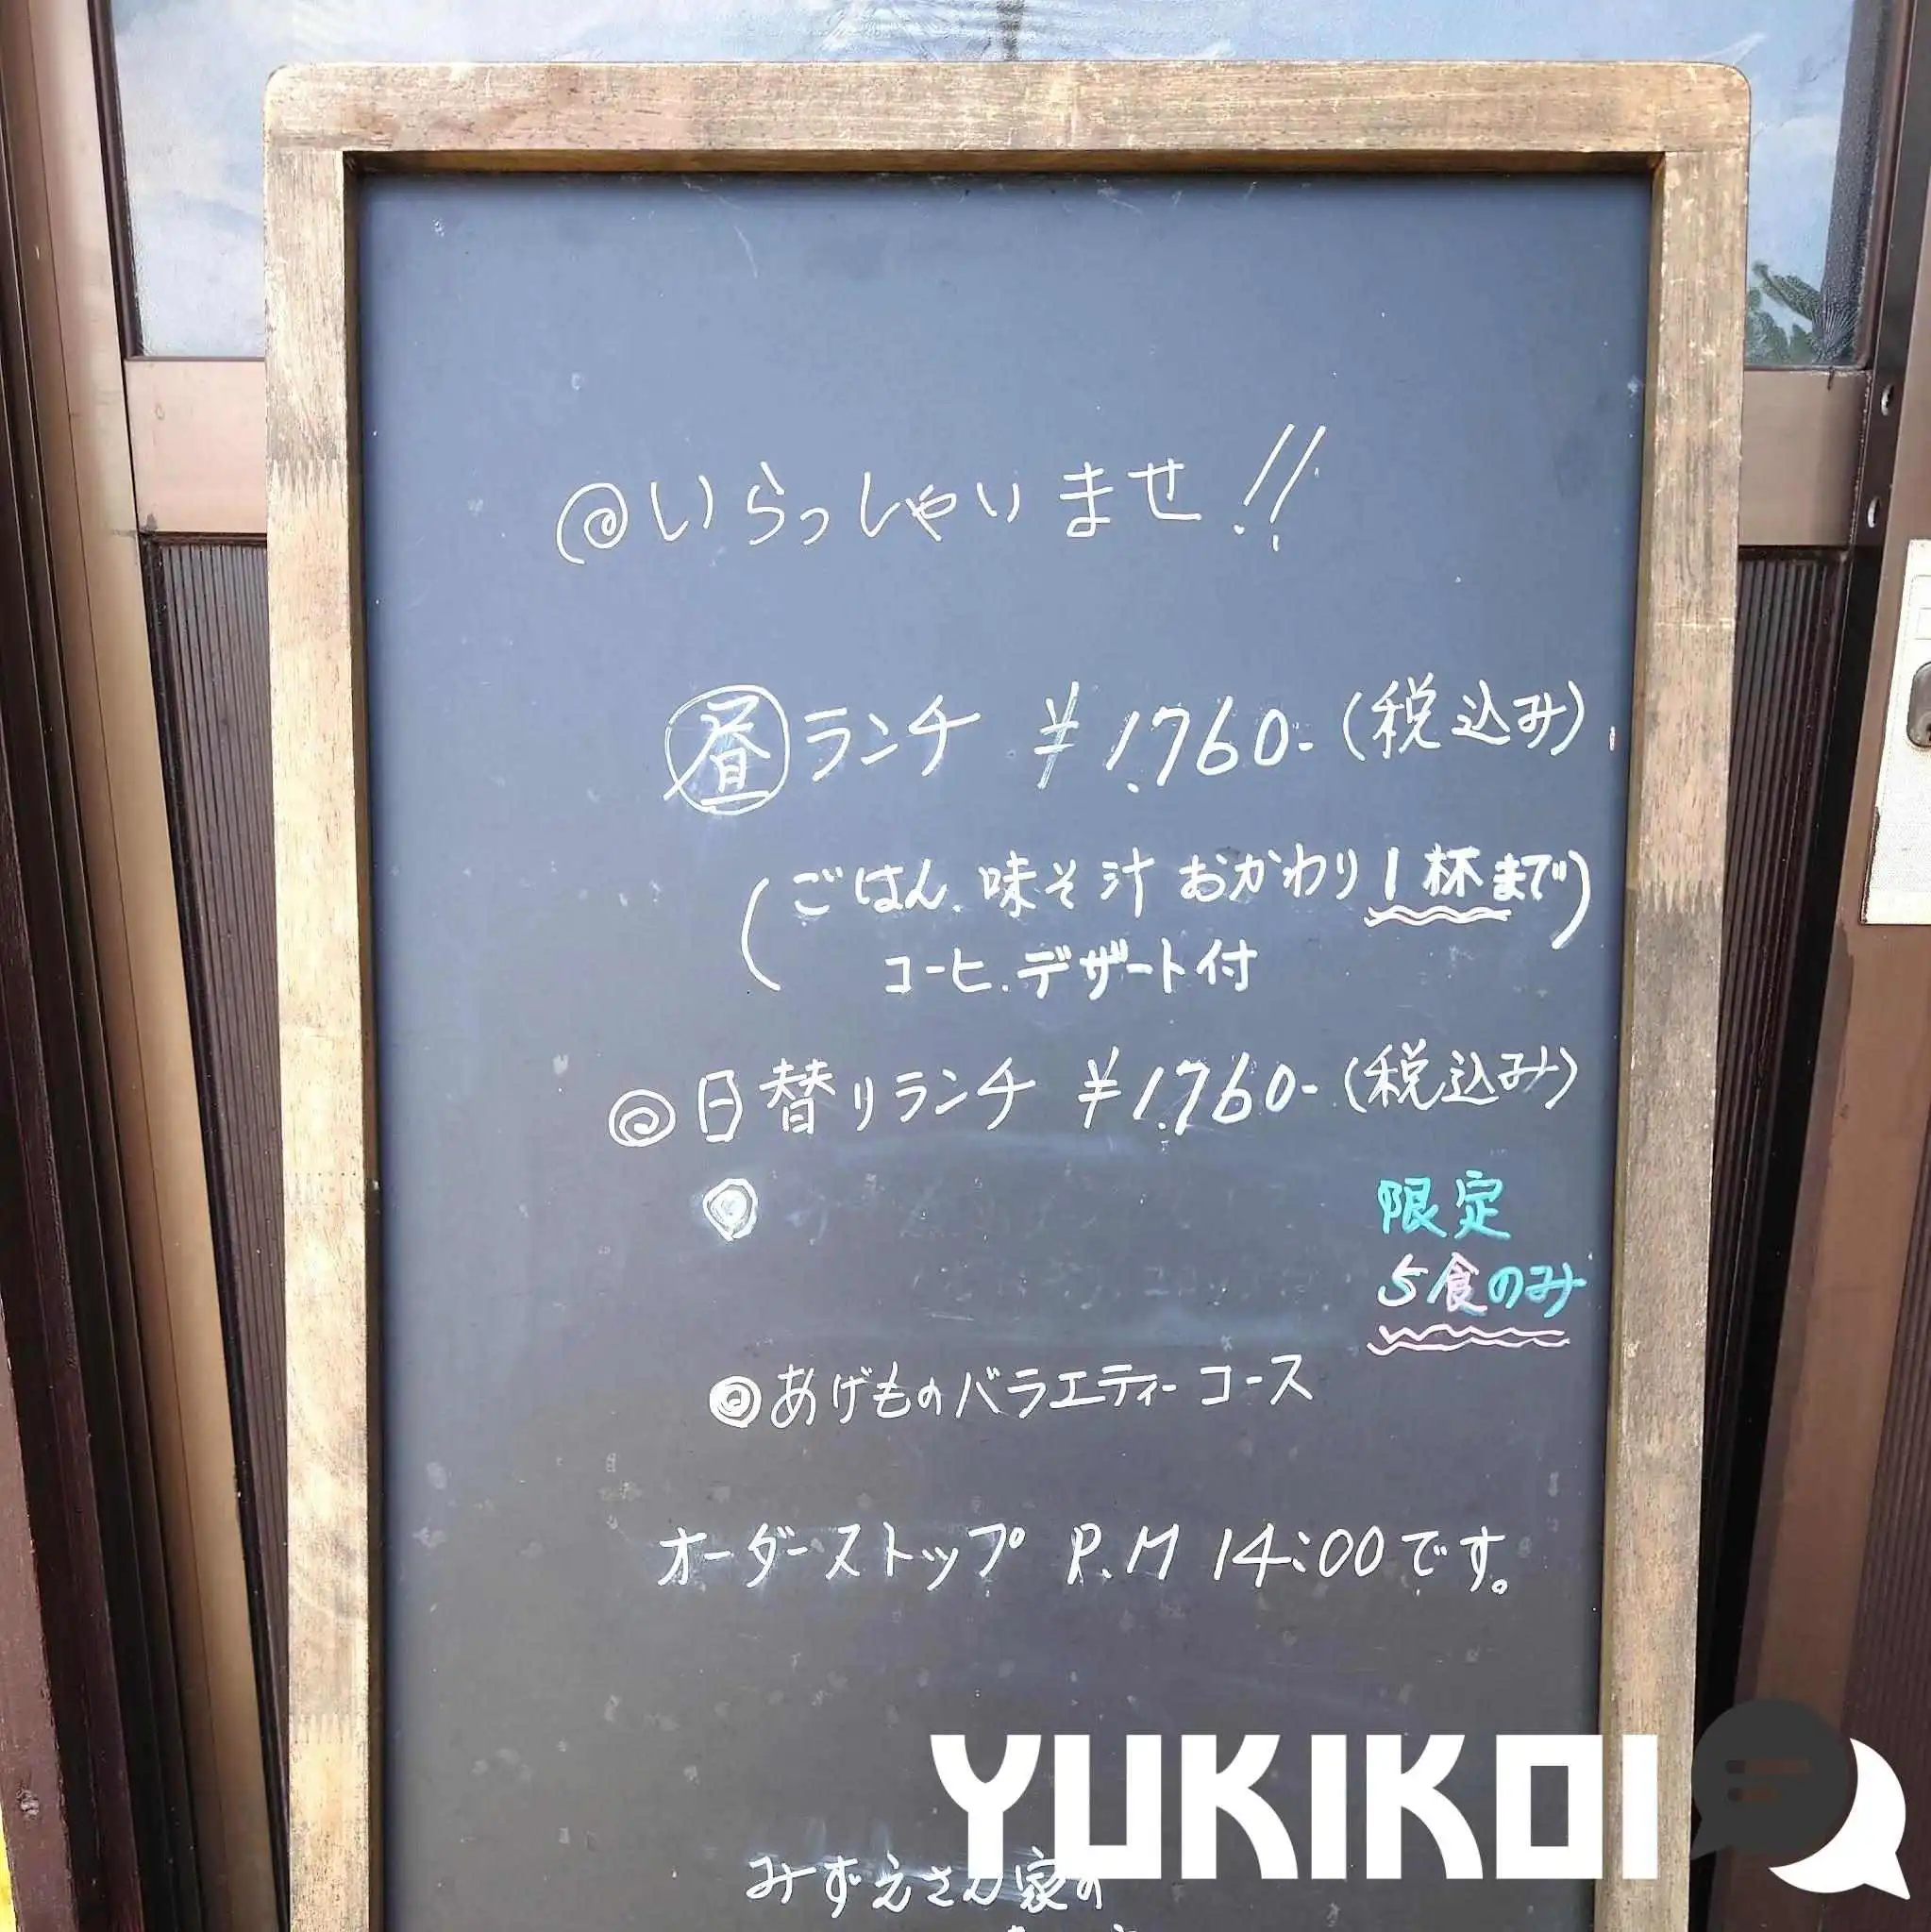 @いらっしゃいませ!!
昼ランチ ¥1.760-(税込み)
(ごはん.味そ汁 おかわり1杯まで)
コーヒ.デザート付
◎日替りランチ ¥1.760-(税込み)
◎
限定
5食のみ
◎あげものバラエティーコース
オーダーストップ P.M 14:00です。
みずえさん家の
YUKIKOI